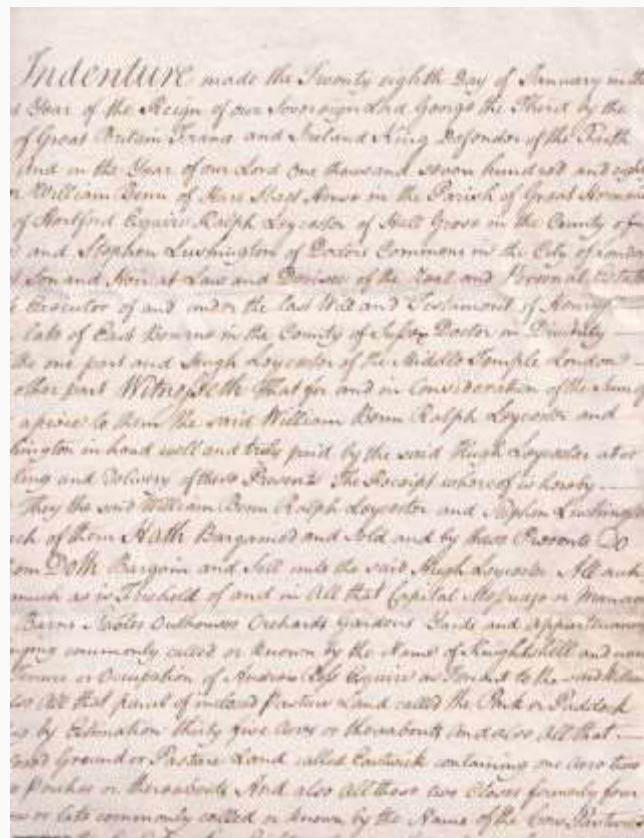 Indenture made the Twenty eighth Day of January in the
Year of the Reign of our Sovereign Lord George the Third by the
of Great Britain France and Ireland King Defender of the Faith
And in the Year of our Lord One thousand seven hundred and eighty
William Benn of Hare Street House in the Parish of Great Hormead
of Hertford Esquire Ralph Leycester of Hall Grove in the County of
and Stephen Lushington of Doctors Commons in the City of London
Son and Heir at Law and Devisee of the Real and Personal Estate
Executor of and under the last Will and Testament of Henry
late of East Bourne in the County of Sussex Doctor in Divinity
the one part and Hugh Leycester of the Middle Temple London
other part Witnesseth That for and in Consideration of the Sum of
apiece to them the said William Benn Ralph Leycester and
hington in hand well and truly paid by the said Hugh Leycester at or
ling and Delivery of these Presents The Receipt whereof is hereby
They the said William Benn Ralph Leycester and Stephen Lushington
ch of them Hath Bargained and Sold and by these Presents Do
Doth Bargain and Sell unto the said Hugh Leycester All
much as is Freehold of and in All that Capital Messuage or
Barns Stables Outhouses Orchards Gardens Yards and Appurtenances
commonly called or known by the Name of Knightshill and now
Tenure or Occupation of Andrew Esquire as Tenant to the said William
All that parcel of inclosed Pasture Land called the Park or Paddock
by Estimation thirty five Acres or thereabouts And also All that
Ground or Pasture Land called containing one Acre two
Perches or thereabouts And also All those two Closes formerly four
or late commonly called or known by the Name of the